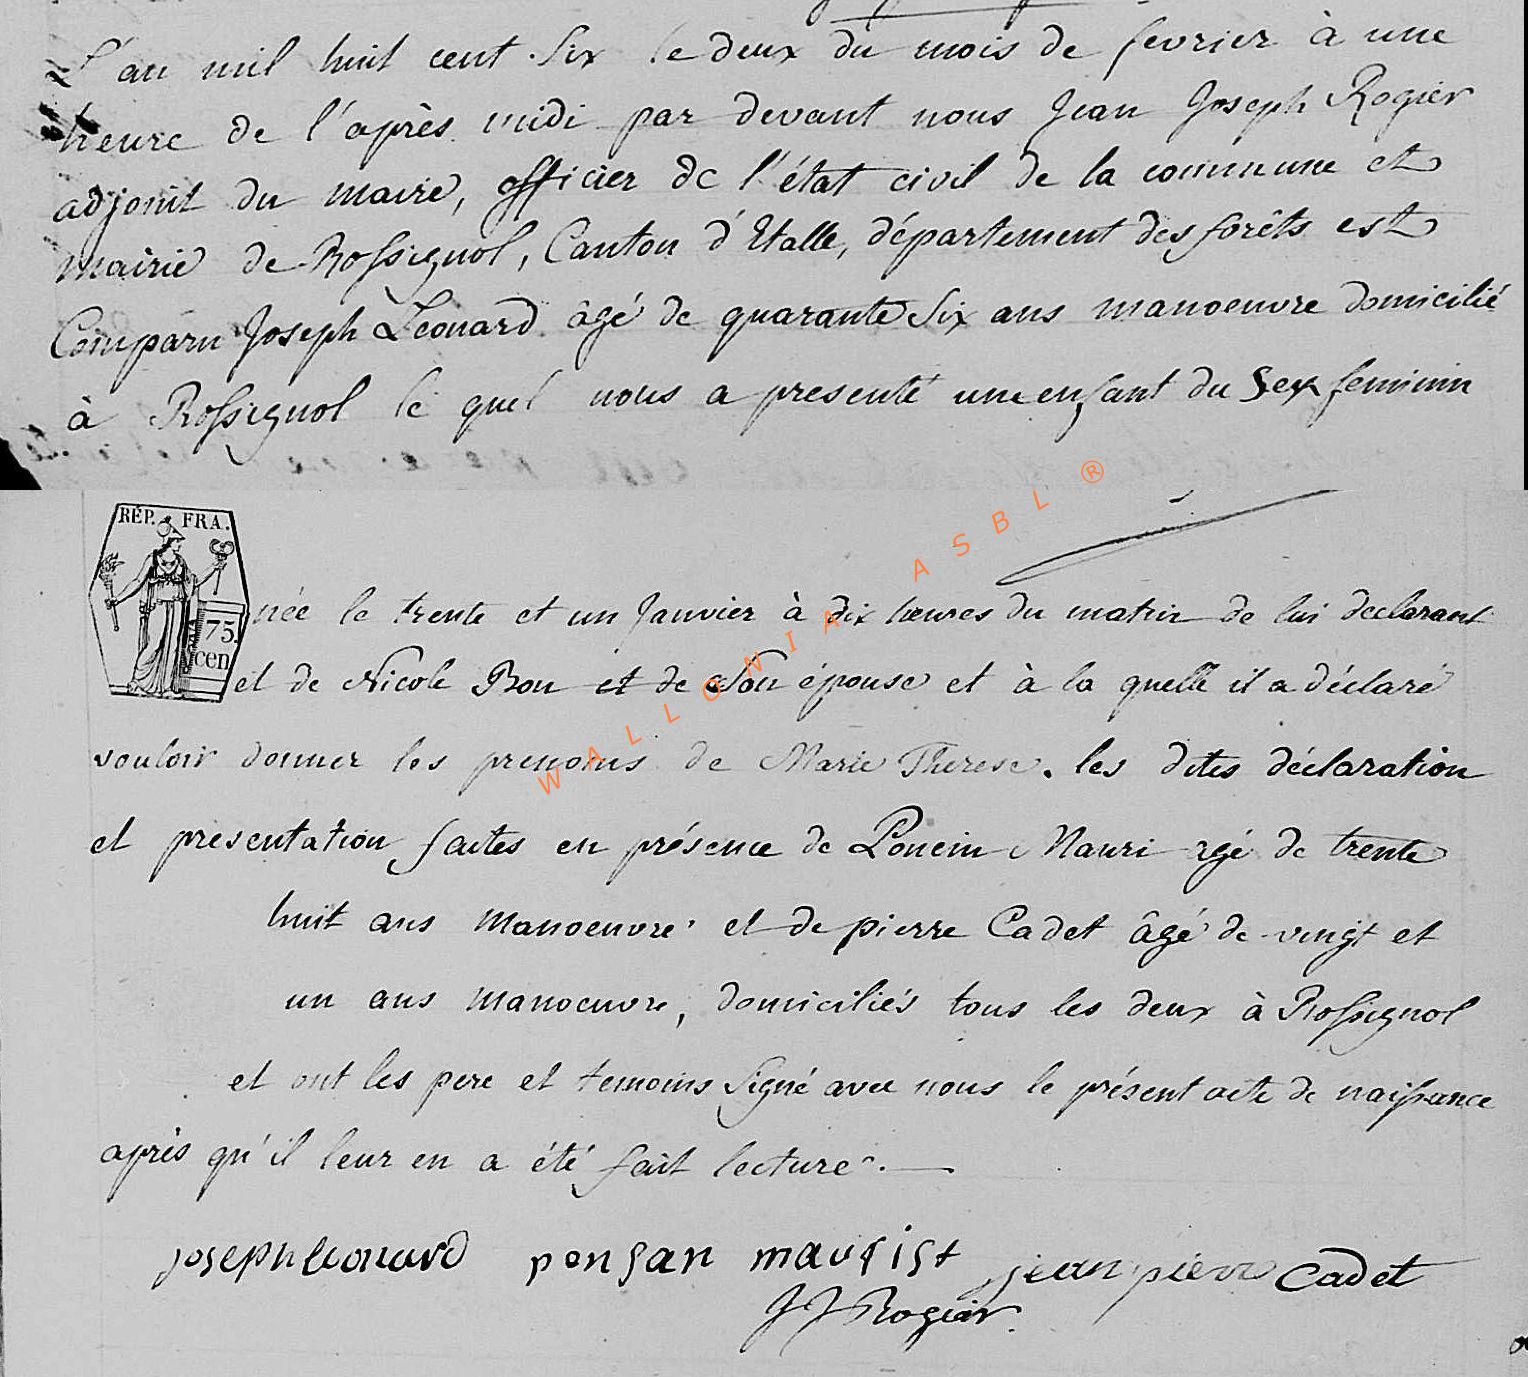 L'an mil huit cent Six le deux du mois de fevrier à une
heure de l'après midi par devant nous Jean Joseph Rogier
adjoint du maire, officier de l'état civil de la commune et
mairie de Rossignol, Canton d'Etalle, département des forêts est
Comparu Joseph Leonard âgé de quarante Six ans manoeuvre domicilié
à Rossignol le quel nous a presenté une enfant du Sex feminin
RÉP. FRA.
75.
cen
née le trente et un Janvier à dix heures du matin de lui declarant
et de Nicole Bon et de Son épouse et à la quelle il a déclaré
vouloir donner les prenoms de Marie Therese. les dites déclaration
et presentation faites en présence de Poncin Mauri agé de trente
huit ans manoeuvre et de pierre Cadet âgé de vingt et
un ans manoeuvre, domiciliés tous les deux à Rossignol
et ont les pere et temoins Signé avec nous le présent acte de naissance
après qu'il leur en a été fait lecture.
joseph leonard ponsan maurist jean pierre Cadet
JJ Rogier
WALLONIA ASBL ®